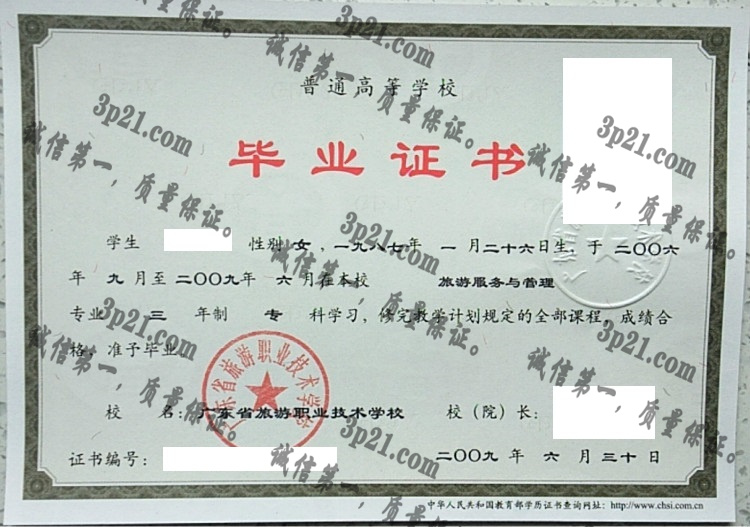 普通高等学校
毕业证书
学生 性别 女，一九八七年 一月二十六日生，于二〇〇六
年 九月至二〇〇九年 六月在本校 旅游服务与管理
专业 三 年制 专 科学习，修完教学计划规定的全部课程，成绩合
格，准予毕业。
校 名：广东省旅游职业技术学校 校（院）长：
证书编号： 二〇〇九年 六月三十日
中华人民共和国教育部学历证书查询网址：http://www.chsi.com.cn
广东省旅游职业技术学校
3p21.com
诚信第一，质量保证。
3p21.com
诚信第一，质量保证。
3p21.com
诚信第一，质量保证。
3p21.com
诚信第一，质量保证。
3p21.com
诚信第一，质量保证。
3p21.com
诚信第一，质量保证。
3p21.com
诚信第一，质量保证。
3p21.com
诚信第一，质量保证。